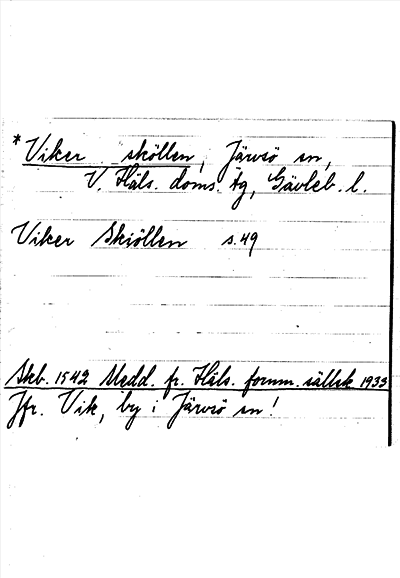 * Viker sköllen, Järvsö sn,
V. Häls. doms. tg, Gävleb. l.
Viker Skiöllen s. 49
Skb. 1542 Medd. fr. Häls. fornm. sällsk 1933
Jfr. Vik, by i Järvsö sn!